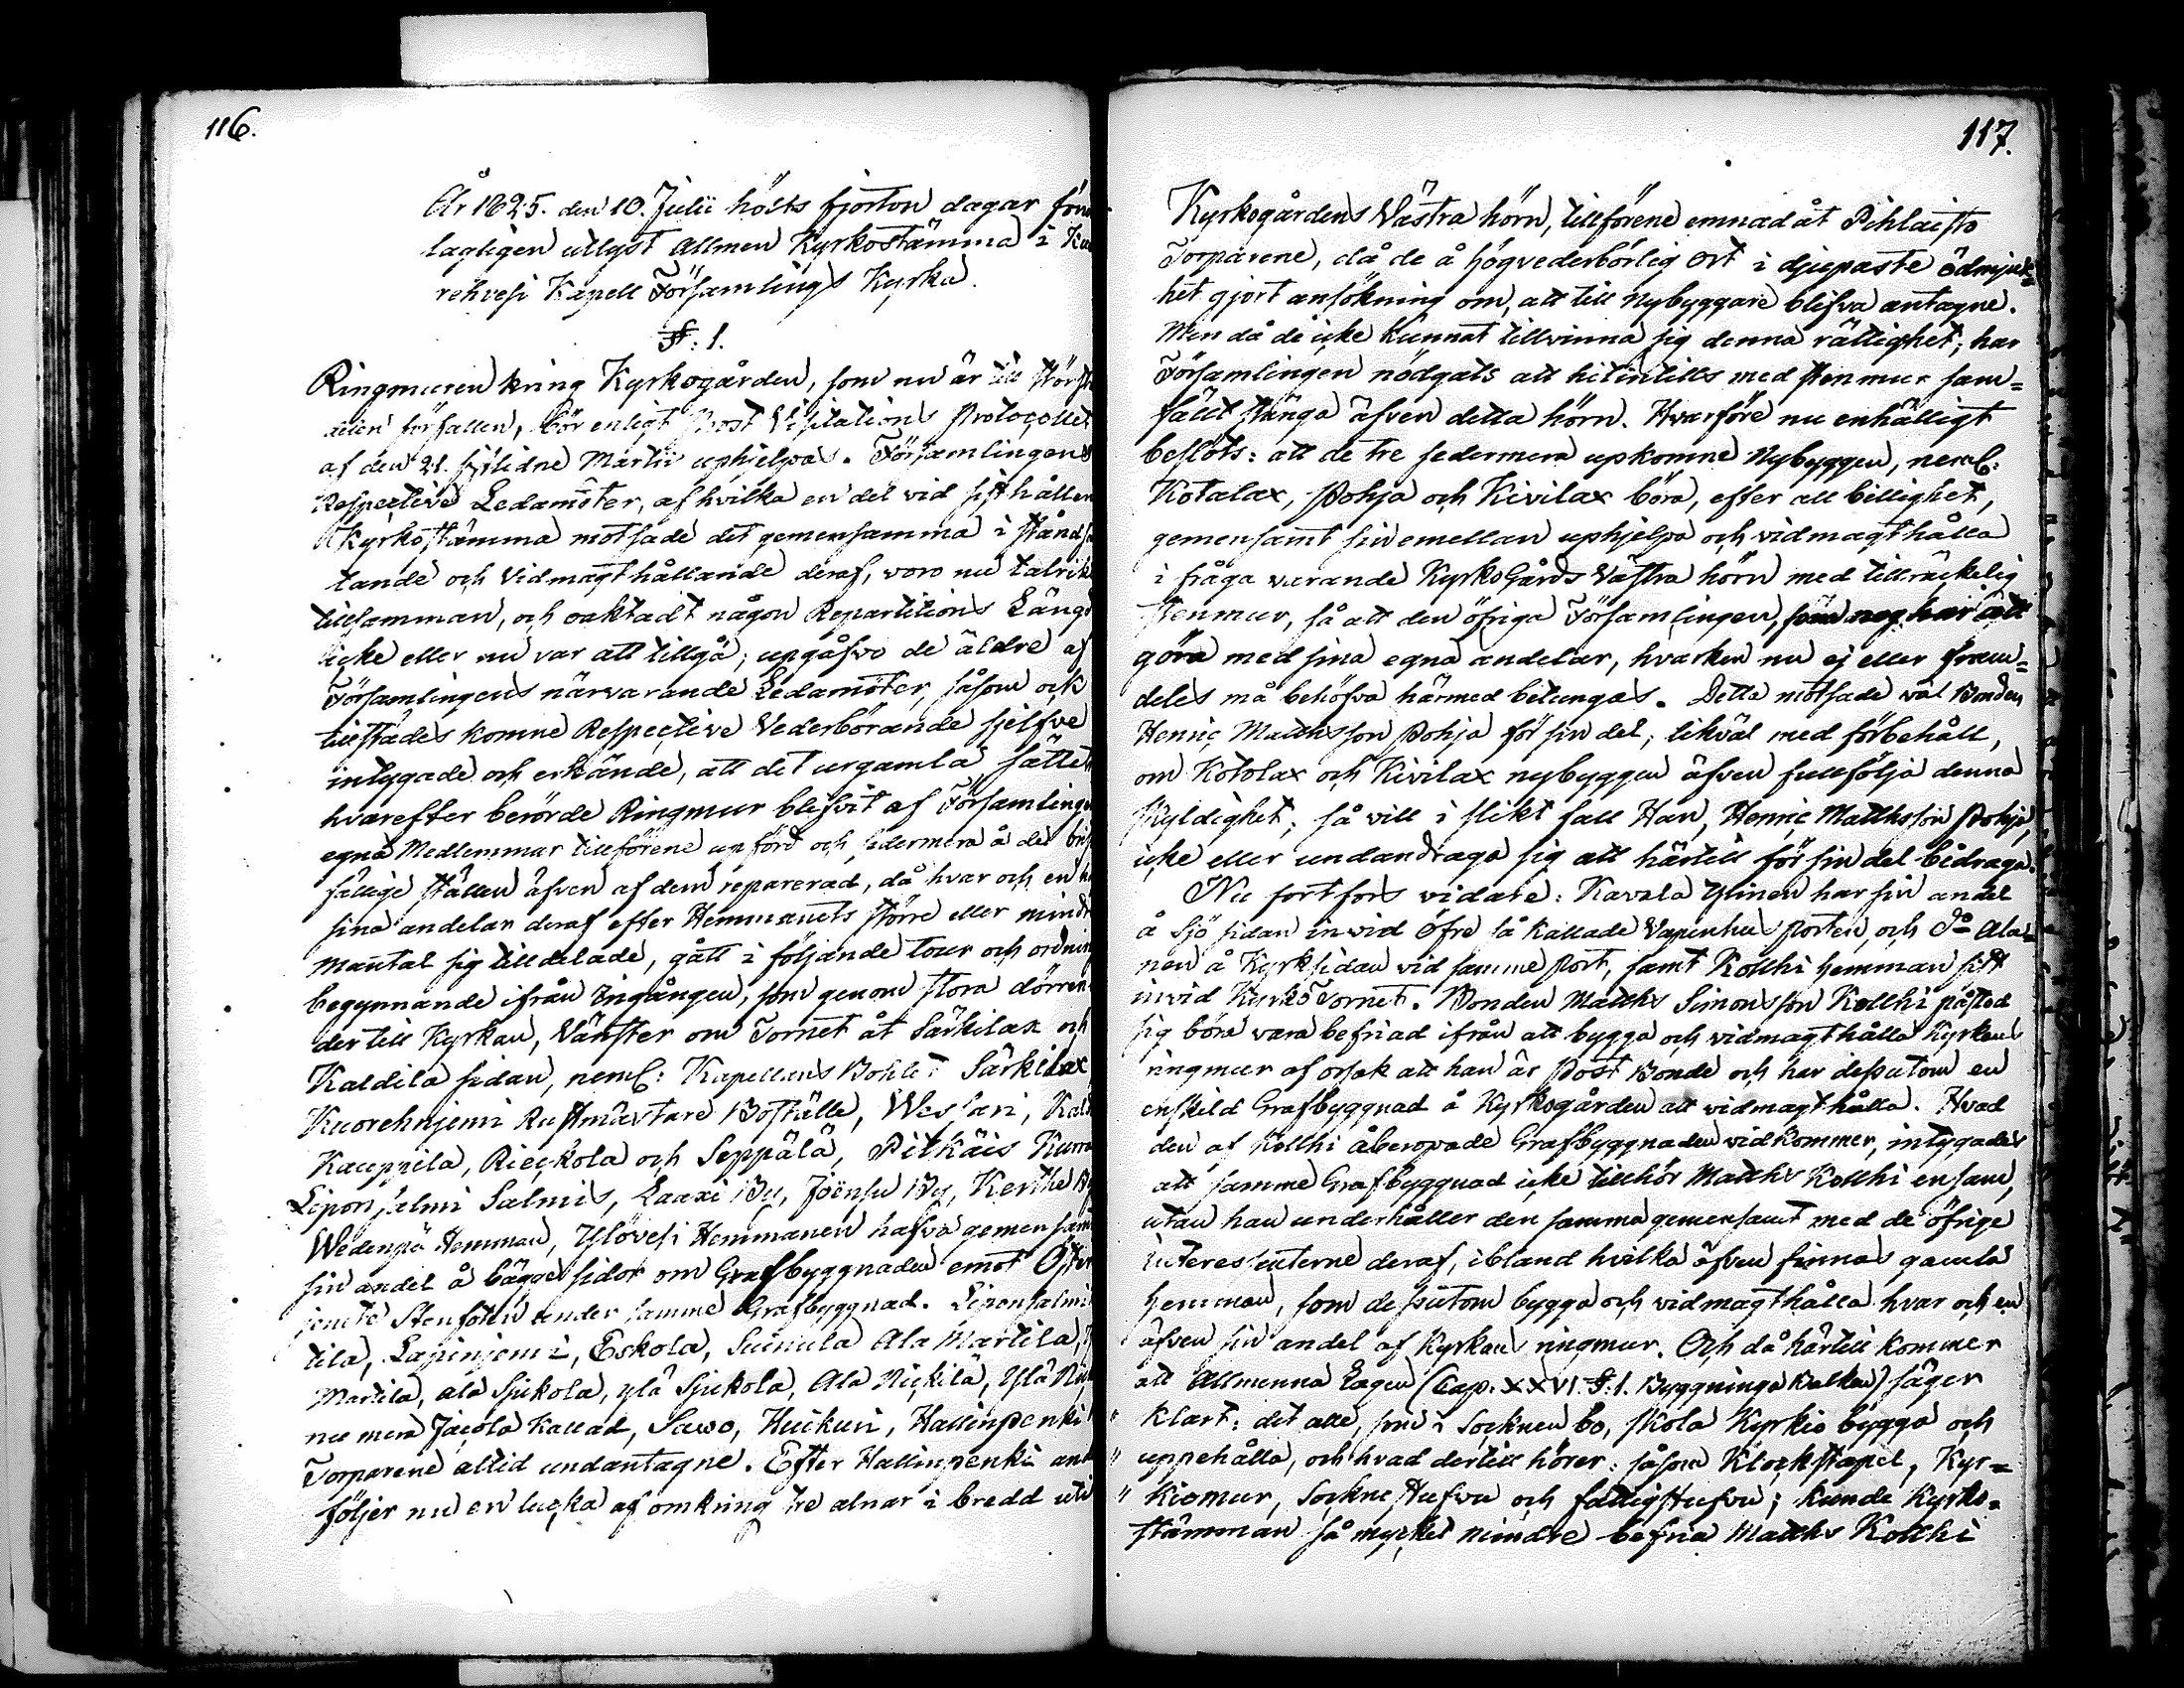 116.
År 1825. den 10. Julii hölts fjorton dagar förut
lagligen utlyst Allmen Kyrkostämma i Kuo
rehvesi Kapell Församlings Kyrka.
§: 1.
Ringmuren kring Kyrkogården, som nu är till största
delen förfallen, bör enligt Prost Visitations Protocollet
af den 21. sistlidne Martii uphjelpas. Församlingens
Respective Ledamöter, af hvilka en del vid sist hållen
Kyrkostämma motsade det gemensamma i ståndsä
tande och Vidmagthållande deraf, voro nu talrikt
tillsamman, och oaktadt någon Repartitions Längd
icke eller nu var att tillgå; upgåfvo de äldre af
Församlingens närvarande Ledamöter, såsom ock
tillstädes komne Respective Vederbörande sjelfve
intygade och erkände, att det urgamla sättet
hvarefter berörde Ringmur blifvit af Församlingens
egna Medlemmar tillförene upförd och sedermera å det brist
fällige ställen äfven af dem reparerad, då hvar och en
sina andelar deraf efter Hemmanets större eller mindre
mantal sig tilldelade, gått i följande tour och ordning
begynnande ifrån Ingången, som genom stora dörren
der till Kyrkan, Vänster om Tornet åt Särkilax och
Kaldila sidan, neml: Kapellans Bohlet Särkilax
Kuorehnjemi Rustmästare Boställe, Wessari, Kald
Kauppila, Rieckola och Seppälä, Pitkäis Kuora
Liponselmi Salmis, Laaxi By, Joënsu By, Kerthe By
Wedenpä Hemman, Ylövesi Hemmanen hafva gemensamt
sin andel å bägge sidor om Grafbyggnaden emot Öster
jemte Stenfoten under samme Grafbyggnad. Liponsalmi
tila, Lapinjemi, Eskola, Suinula Ala Martila,
Martila, ala Sjukola, ylä Sjukola, Ala Nickilä, Ylä Nic
nu mera Jacola kallad, Sawo, Huikuri, Hallinpenki
Torparene altid undantagne. Efter Hallinpenki and
följer nu en lucka af omkring tre alnar i bredd uti
117.
Kyrkogårdens Västra hörn, tillförene emnad åt Pihlaisto
Torparene, då de å högvederbörlig ort i djupaste ödmjuk=
het gjort ansökning om, att till Nybyggare blifva antagne.
Men då de icke kunnat tillvinna sig denna rättighet; har
Församlingen nödgats att hitintills med stenmur sam=
fällt stänga äfven detta hörn. Hvarföre nu enhälligt
beslöts: att de tre sedermera upkomne Nybyggen, neml:
Kotalax, Pohja och Kivilax böra, efter all billighet,
gemensamt sin emellan uphjelpa och vidmagthålla
i fråga varande KyrkoGårds Västra hörn med tillräckelig
stenmur, så att den öfriga Församlingen, som nog har att
göra med sina egna andelar, hvarken nu ej eller fram=
deles må behöfva härmed betungas. Detta motsade väl Bonden
Henric Matthsson Pohja för sin del; likväl med förbehåll,
om Kotolax och Kivilax nybyggen äfven fullfölja denna
skyldighet; så vill i slikt fall Han, Henric Matthsson Pohja,
icke eller undandraga sig att härtill för sin del bidraga.
Nu fortfors vidare: Kavala Ylinen har sin andel
å Sjö sidan invid Öfre så kallade Vapenhus porten, och Do Ala=
nen å Kyrksidan vid samme port, samt Kollhi hemman sitt
invid KyrkoTornet. Bonden Matths Simonsson Kollhi påstod
sig böra vara befriad ifrån att bygga och vidmagthålla Kyrkans
ringmur af orsak att han är Post Bonde och har desutom en
enskild Grafbyggnad å Kyrkogården att vidmagthålla. Hvad
den af Kollhi åberopade Grafbyggnaden vidkommer, intygades
att samme Grafbyggnad icke tillhör Matths Kollhi ensam,
utan han underhåller den samma gemensamt med de öfrige
interessenterne deraf, ibland hvilka äfven finnas gamla
hemman, som desutom bygga och vidmagthålla hvar och en
äfven sin andel af Kyrkans ringmur. Och då härtill kommer
att Allmenna Lagen (Cap. XXVI. §: 1. Byggninga Balken) säger
" klart: det alle, som i Socknen bo, skola Kyrkio bygga och
" uppehålla, och hvad dertill hörer: såsom Klockstapel, Kyr=
" kiomur, Sockne stufvu och fattigstufvu; kunde Kyrko=
stämman så mycket mindre befria Matths Kollhi